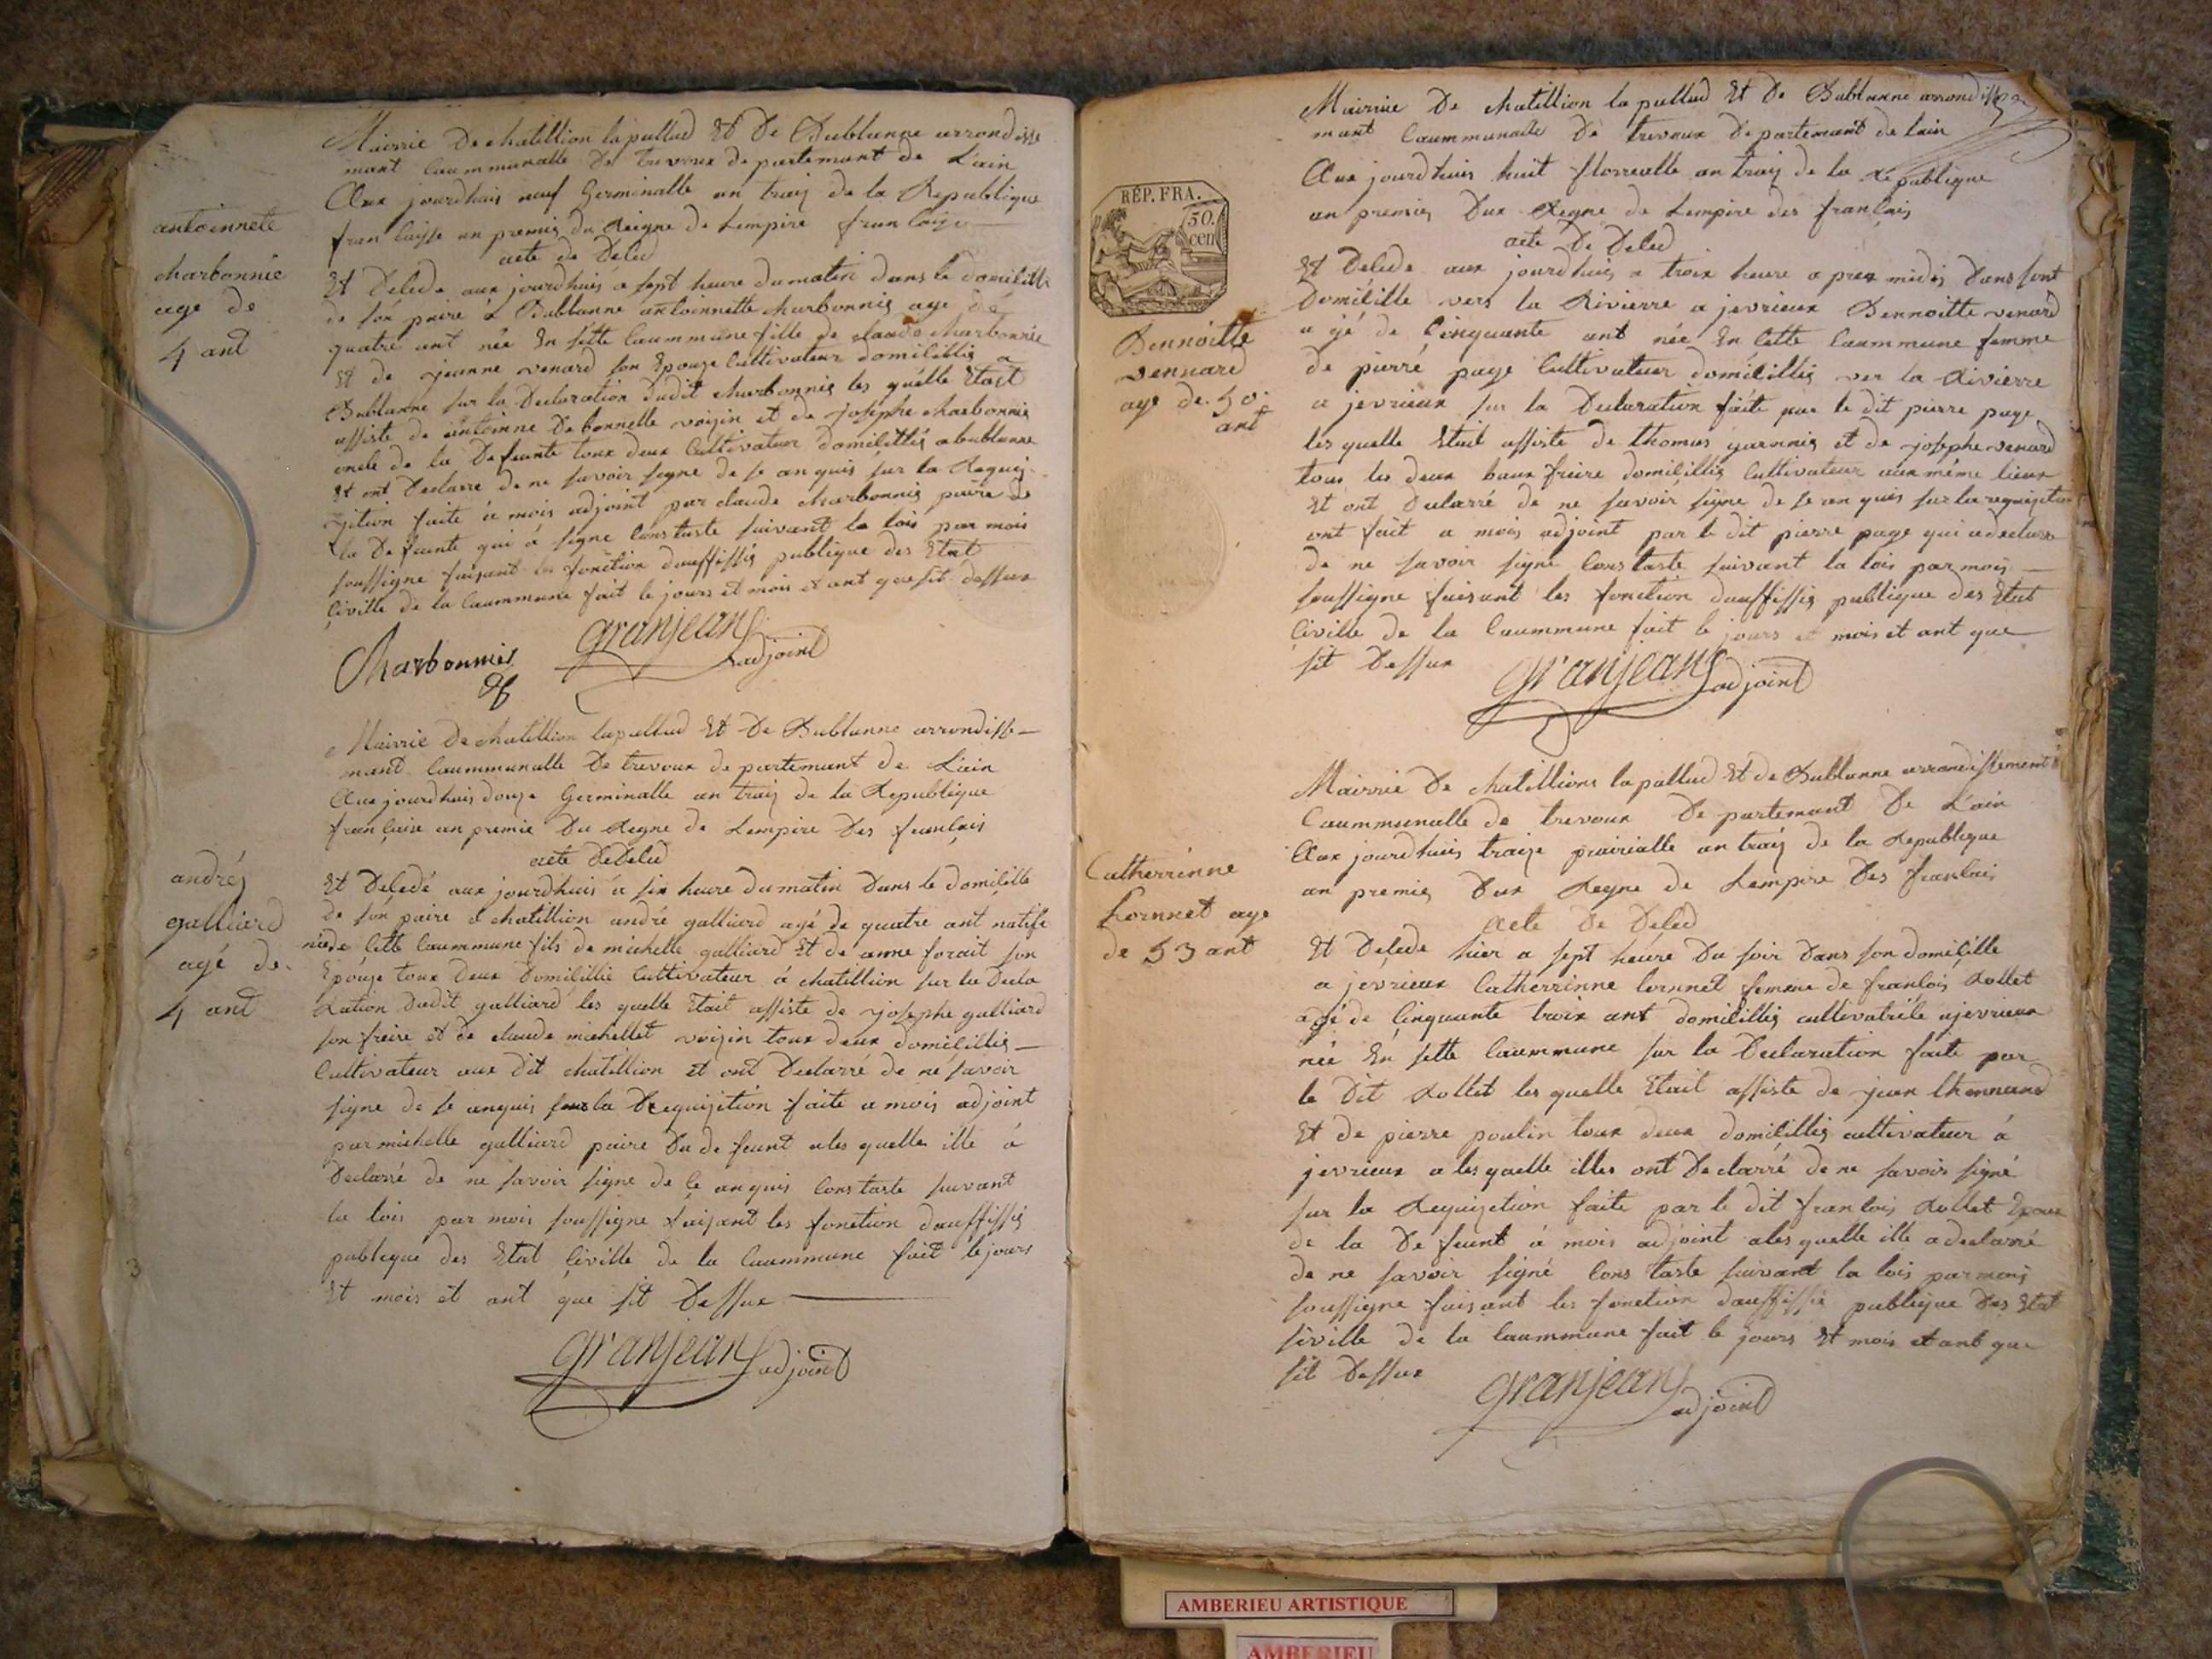 Mairrie De chatillion lapallud Et De Bublanne arrondisse
mant Caummunalle De trevoux departemant de L'ain
Aux jourdhuis neuf Germinalle an traiz de la Republique
francaisse an premie du Reigne de Lempire francaize
acte de Deled
antoinnete
charbonnie
age de
4 ant
Et Delede aux jourdhuis a sept heure du matin dans le domicille
de son paire a Bublanne antoinnette charbonnie age de
quatre ant née En sette Caummune fille de claude charbonnie
Et de jeanne venard son Epouze Cultivateur domicillie a
Bublanne sur la Declaration dudit charbonnie les quelle Etait
assiste de antoinne Debonnelle voizin et de josephe charbonnie
oncle de la Defeunte toux deux Cultivateur domicillié a bublanne
Et ont Declarre de ne savoir signe de se anquis sur la Requi
zition faite a mois adjoint par claude charbonnie paire de
la Defeunte qui a signe Constaste suivant la lois par mois
soussigne faisant les fonction dauffissie publique des Etat
Civille de la Caummune fait le jours et mois et ant que sit dessux
Charbonnier granjean adjoint
Mairrie De chatillion lapallud Et De Bublanne arrondisse-
mant Caummunalle De trevoux departemant de L'ain
Aux jourdhuis douze Germinalle an traiz de la Republique
francaise an premie Du Regne de Lempire Des francais
acte DeDeled
andréz
galliard
agé de
4 ant
Et Deledé aux jourdhuis a six heure du matin Dans le domicille
de son paire a chatillion andré galliard agé de quatre ant natife
née de Cette Caummune fils de michelle galliard Et de anne forait son
Epouze toux Deux Domicillie Cultivateur á chatillion sur la Decla
Ration Dudit galliard les quelle Etait assiste de josephe galliard
son freire et de claude michellet voizin toux deux domicillié
Cultivateur aux Dit chatillion et ont Declarré de ne savoir
signe de se anquis sur la Requizition faite a mois adjoint
par michelle galliard paire Du defeunt ales quelle ille á
Declarré de ne savoir signe de Ce anquis Constaste suivant
la lois par mois soussigne faizant les fonction dauffissie
publique des Etat Civille de la Caummune fait le jours
Et mois et ant que sit Dessux
granjean adjoint
Mairrie De chatillion lapallud Et De Bublanne arrondisse
mant Caummunalle De trevoux Departemant de Lain
Aux jourdhuis huit florrealle an traiz de la Republique
an premie Dux Regne de Lempire des francais
acte De Deled
REP. FRA.
50.
cen
Bennoitte
vennard
age de 50.
ant
Et Delede aux jourdhuis a troix heure apres midis Dans sont
Domicille vers la Rivierre a jevrieux Bennoitte venard
agé de Cinquante ant née En Cette Caummune femme
de pierré page Cultivateur domicillie ver la Rivierre
a jevrieux sur la Declaration faite par le dit pierre page
les quelle Etait assiste de thomas garonnie et de josephe venard
tous les deux baux freire domicillie Cultivateur aux même lieux
Et ont Declarré de ne savoir signe de se anquis sur la requizition
ont fait a mois adjoint par le dit pierre page qui adeclare
de ne savoir signe Constaste suivant la lois par mois
soussigne faisant les fonction dauffissie publique des Etat
Civille de la Caummune fait le jours et mois et ant que
sit Dessux granjean adjoint
Mairrie De chatillions lapallud Et de Bublanne arrondissement
Caummunalle de trevoux Departemant De L'ain
Aux jourdhuis traize prairialle an traiz de la Republique
an premie Dux Regne de Lempire Des francais
Acte De Deled
Catherrinne
Cornnet age
de 53 ant
Et Delede hier a sept heure Du soir Dans son domicille
a jevrieux Catherrinne Cornnet femme de francois Rollet
agé de Cinquante troix ant domicillie cultivatrice ajevrieux
née En sette Caummune sur la Declaration faite par
le Dit Rollet les quelle Etait assiste de jean
Et de pierre poulin toux deux domicillie cultivateur á
jevrieux ales quelle illes ont Declarré de ne savoir signé
sur la Requizition faite par le dit francois Rollet Epoux
de la Defeunt á mois adjoint ales quelle ille adeclarré
de ne savoir signé Constaste suivant la lois par mois
soussigne faisant les fonction dauffissie publique Des Etat
siville de la Caummune fait le jours Et mois et ant que
sit Dessux granjean adjoint
AMBERIEU ARTISTIQUE
AMBERIEU